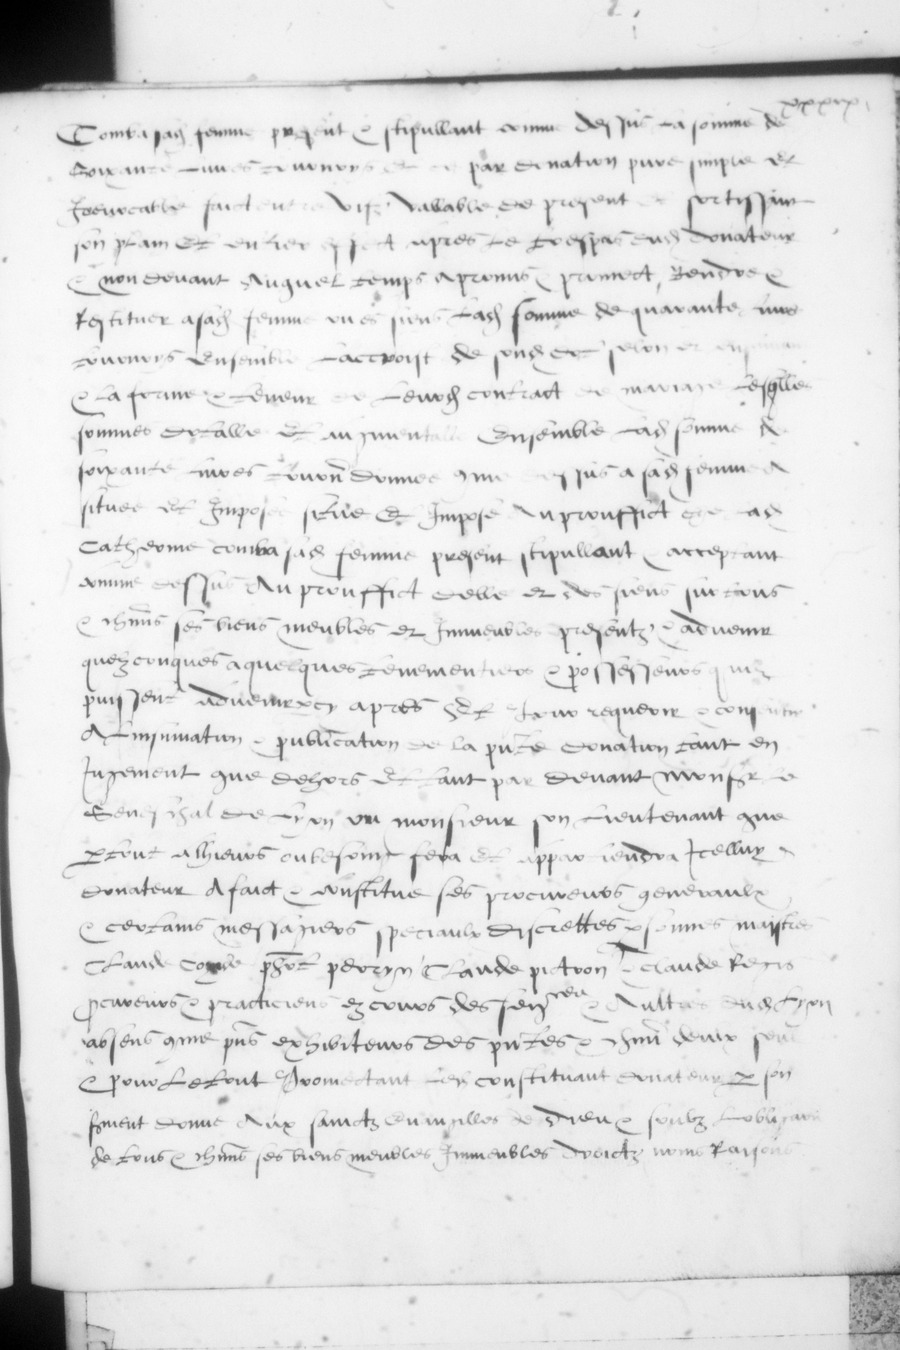 xxxix
Comba sad femme present & stipullant comme dessus la somme de
soixante livres tournoys et ce par donation pure simple et
Irrevocable faict entre vifz vallable de present et sortissant
son plain et entier effect apres le trespas dud donateur
& non devant Auquel temps a promis & promect Rendre &
Restituer a sad femme ou es siens lad somme de quarante livres
tournoys ensemble laccroist de selon et
& la forme & teneur de leurd contract de mariage lesqlles
sommes dotalle et augmentalle Ensemble lad somme de
soixante livres tourn donnee comme dessus a sad femme A
situee et Imposee situe et Impose Au prouffict de lad
Catherine comba sad femme present stipullant & acceptant
comme dessus Au prouffict delle et des siens sur tous
& chuns ses biens meubles et Immeubles presentz & advenir
quelzconques a quelques tenementiers & possesseurs quilz
puissent advenir cy apres Et pour requerir & consentir
A linsinuation & publication de la pnte donation tant en
Jugement que dehors Et tant par devant monsr le
Seneschal de Lyon ou monsieur son lieutenant que
p tout alhieurs ou besoing sera et appartiendra Icelluy
donateur A faict & constitue ses procureurs generaulx
& certains messagiers speciaulx discrettes psonnes maistres
Claude perryn Claude pictron & Claude Regis
Pcureurs & practiciens ez cours des senscee & Aultres dud Lyon
absens comme pns exhibiteurs des pntes & chun deulx seul
& pour le tout Promectant led constituant donateur p son
sment donne Aux sainctz Euvangilles de dieu & soubz lobligation
de tous & chuns ses biens meubles Immeubles droictz noms Raisons